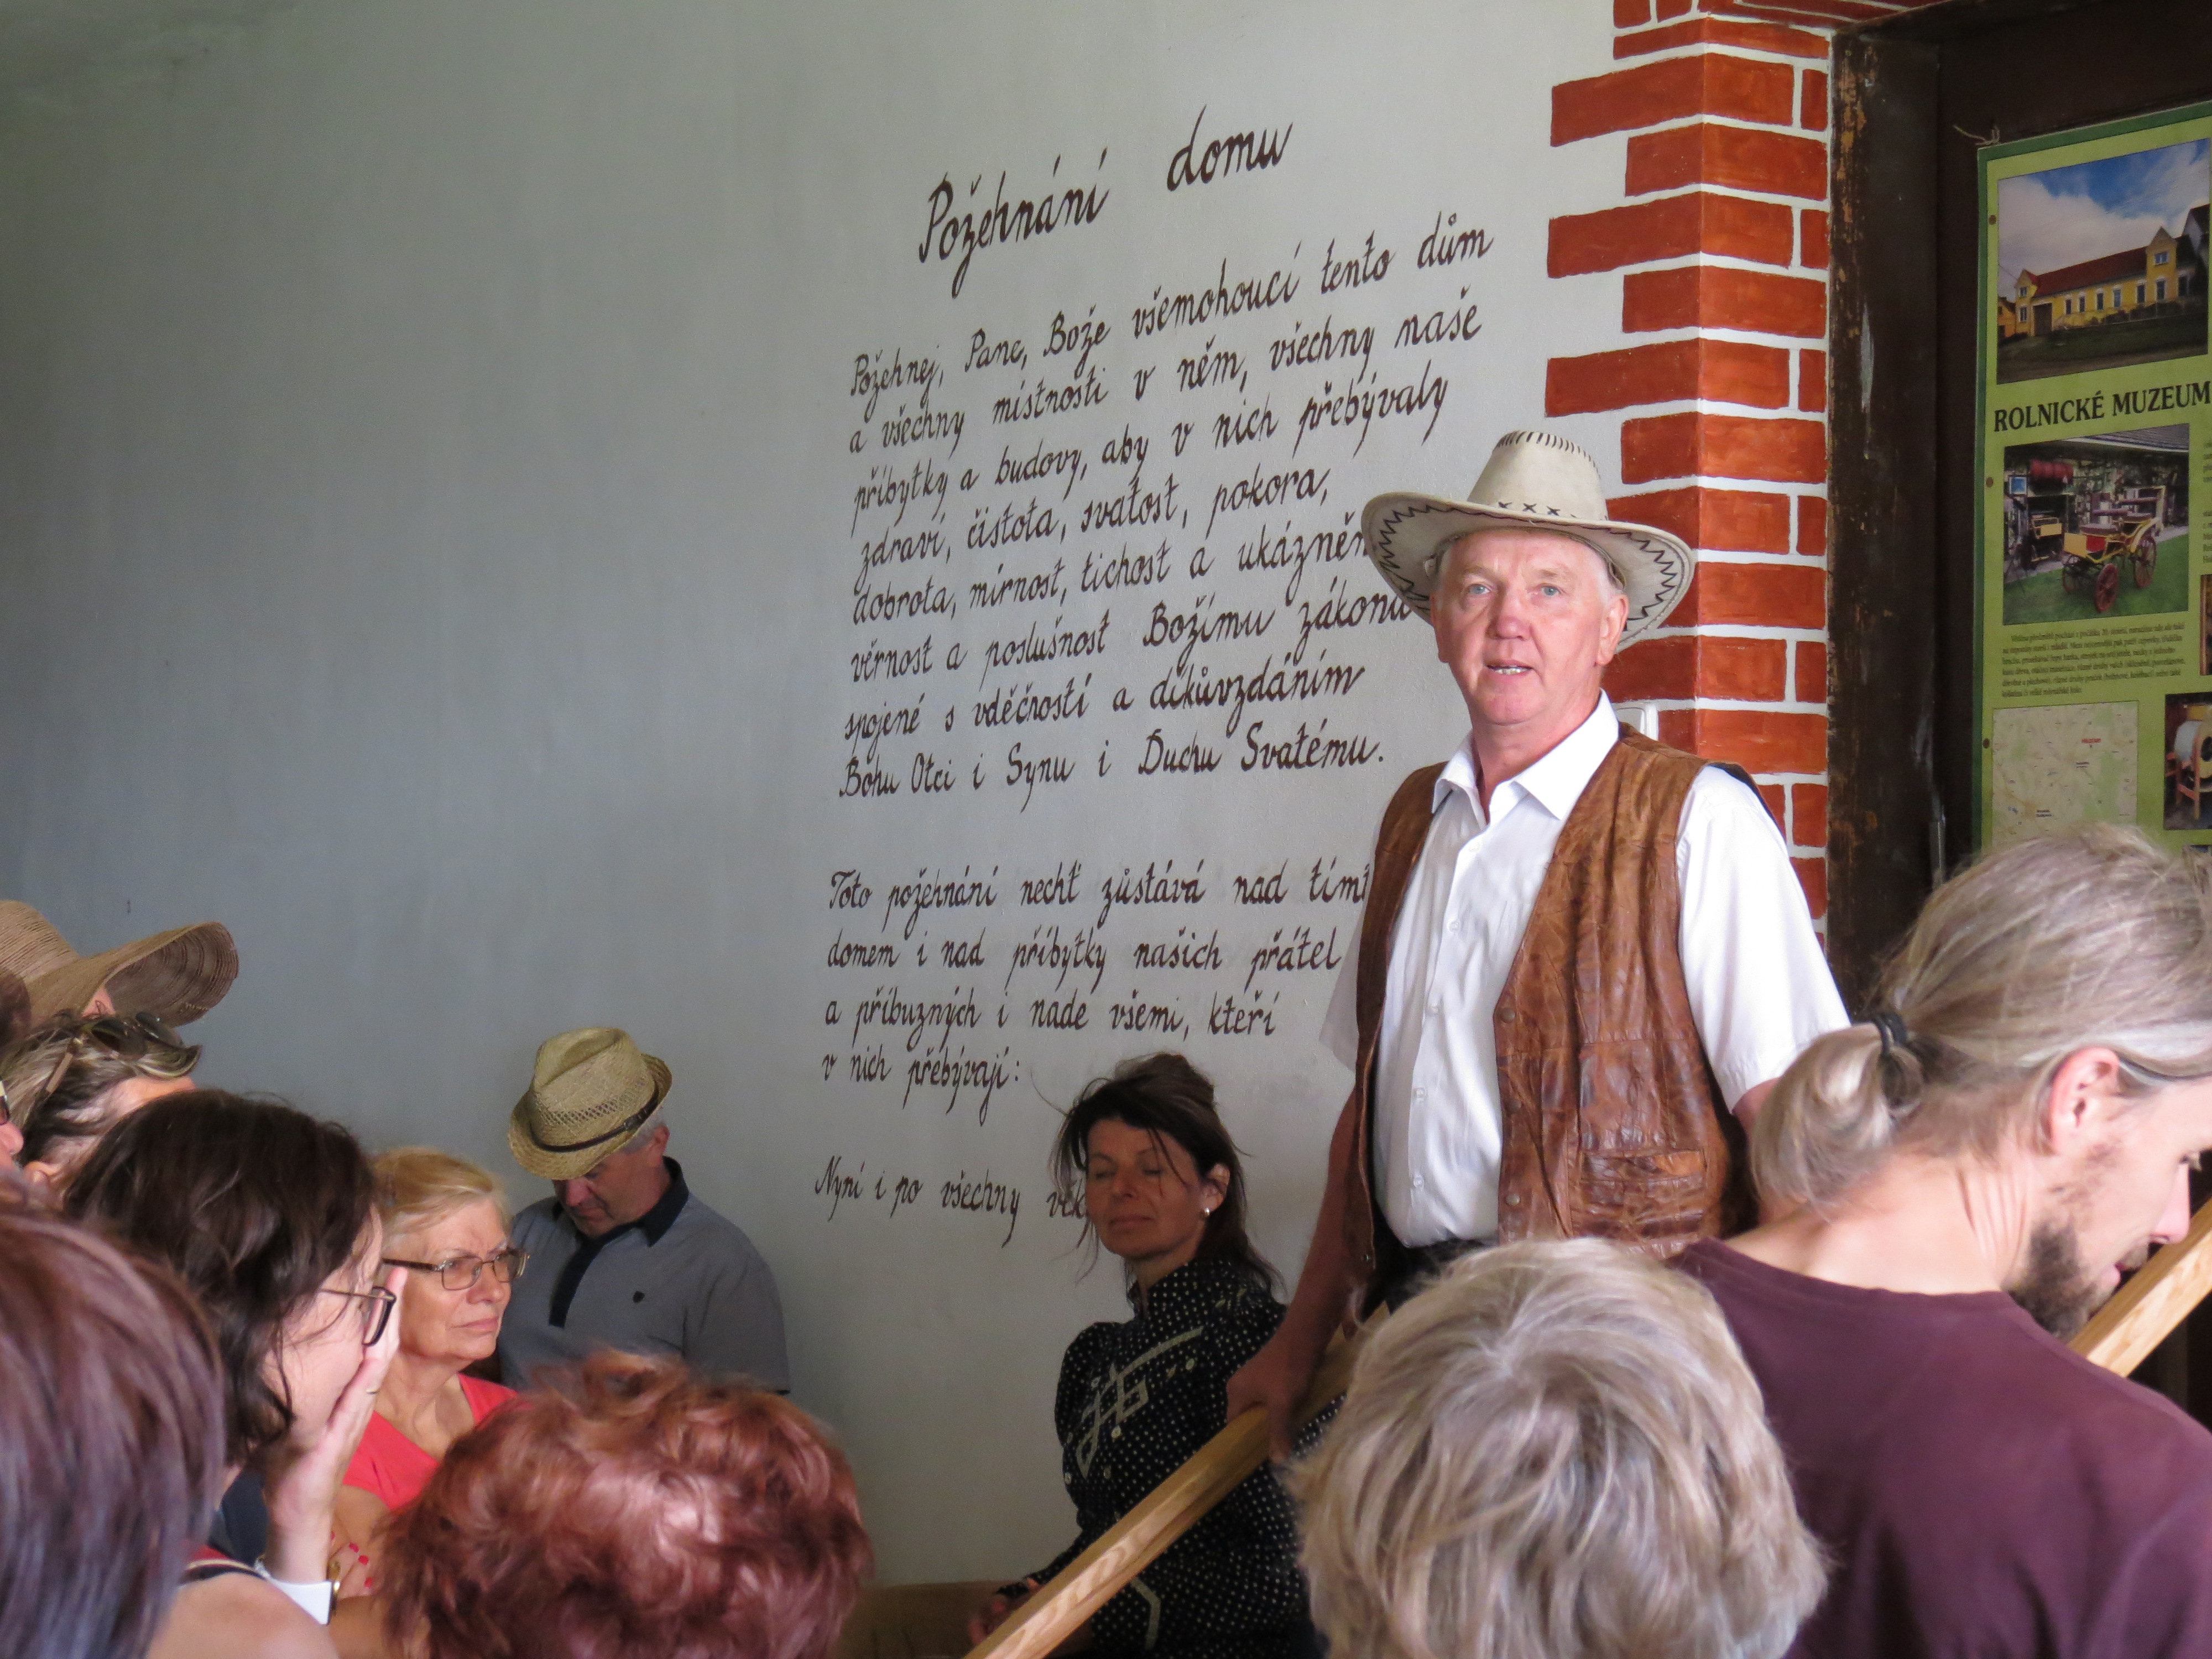 Požehnání domu
Požehnej, Pane, Bože všemohoucí tento dům
a všechny místnosti v něm, všechny naše
příbytky a budovy, aby v nich přebývaly
zdraví, čistota, svatost, pokora,
dobrota, mírnost, tichost a ukázněn
věrnost a poslušnost Božímu zákonu
spojené s vděčností a díkůvzdáním
Bohu Otci i Synu i Duchu Svatému.
Toto požehnání nechť zůstává nad tímt
domem i nad příbytky našich přátel
a příbuzných i nade všemi, kteří
v nich přebývají:
Nyní i po všechny věk
ROLNICKÉ MUZEUM